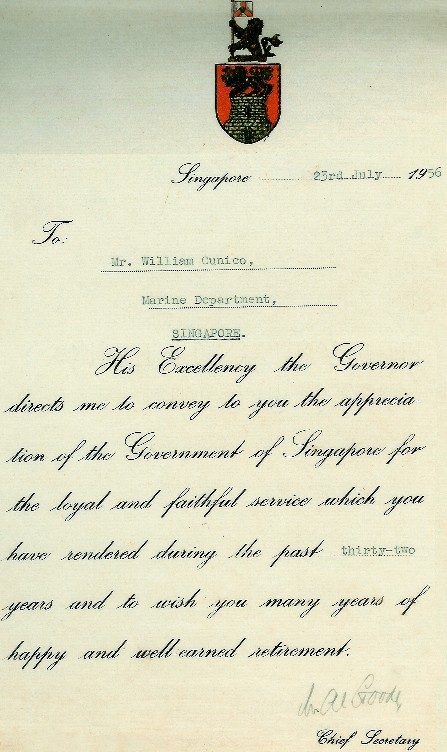 Singapore 23rd July 1956
To:
Mr. William Cunico,
Marine Department,
SINGAPORE.
His Excellency the Governor
directs me to convey to you the apprecia
tion of the Government of Singapore for
the loyal and faithful service which you
have rendered during the past thirty-two
years and to wish you many years of
happy and well earned retirement.
Goode
Chief Secretary